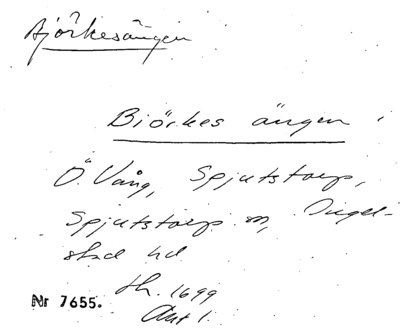 Björkesängen
Biörkes ängen
Ö. Vång, Spjutstorp,
Spjutstorps sn, Ingel-
stad hd
th. 1699
Akt 1.
Nr 7655.